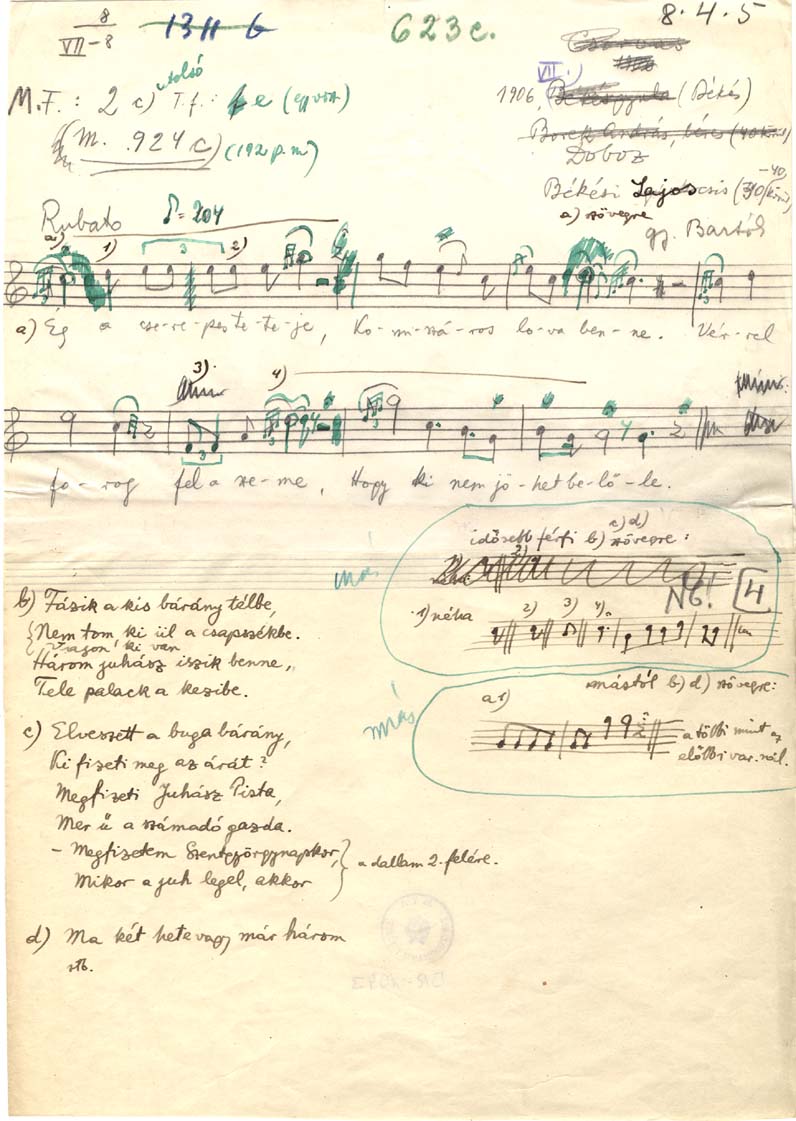 8
VII-8
13 II b
623 c.
8.4.5
Csorvas
VII.)
utolsó
M.F.: 2 c) T.f.: e
1906, Békésgyula (Békés)
(M. 924 c) (192 p.m)
Doboz
Békési Lajos
a) szövegre
gy. Bartók
Rubato ♪=204
a1) 1) 3 2)
a) Ég a cse-re-pes te-te-je, Ko-mi-szá-ros lo-va ben-ne. Vér-rel
3) 4)
3
fo-rog fel a sze-me, Hogy ki nem jö-het be-lő-le.
idősebb férfi b) c) d) szövegre:
más
NB! 4
1) néha 2) 3) 4)
b) Fázik a kis bárány télbe,
Nem tom ki ül a csapszékbe.
ki van
Három juhász iszik benne,
Tele palack a kezibe.
mástól b) d) szövegre:
más
a1)
a többi mint az
előbbi var.nál.
c) Elveszett a buga bárány,
Ki fizeti meg az árát?
Megfizeti Juhász Pista,
Mer ű a számadó gazda.
- Megfizetem Szentgyörgynapkor,
Mikor a juh legel, akkor
a dallam 2. felére.
d) Ma két hete vagy már három
stb.